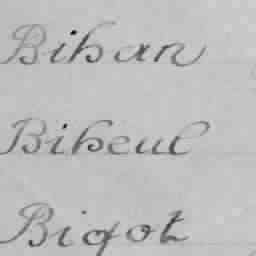 Bihan
Biheul
Bigot